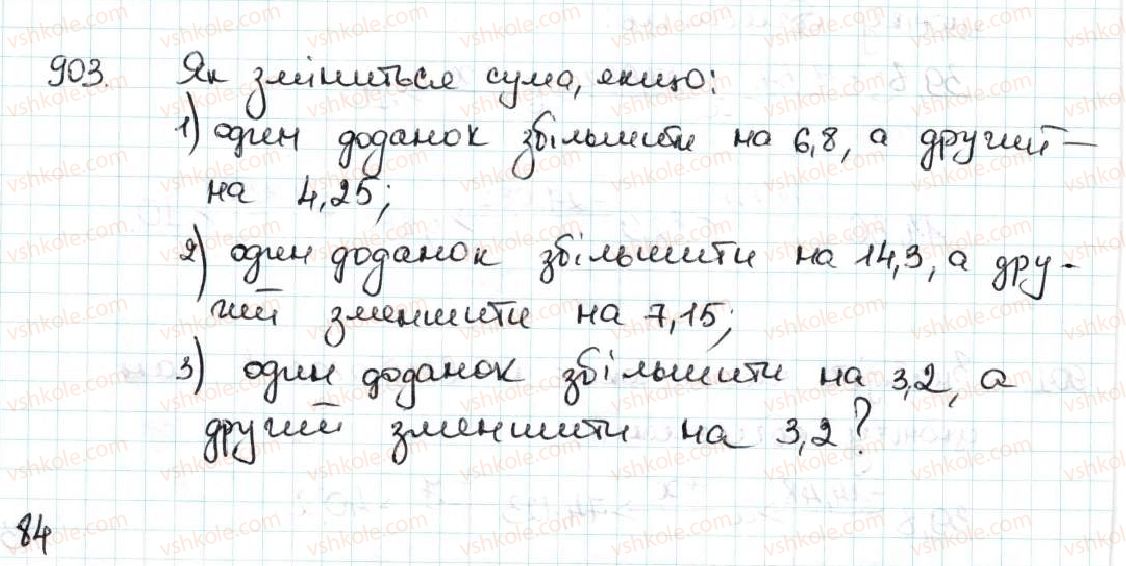 903. Як зміниться сума, якщо:
1) один доданок збільшити на 6,8, а другий —
на 4,25;
2) один доданок збільшити на 14,3, а дру-
гий зменшити на 7,15;
3) один доданок збільшити на 3,2, а
другий зменшити на 3,2?
84